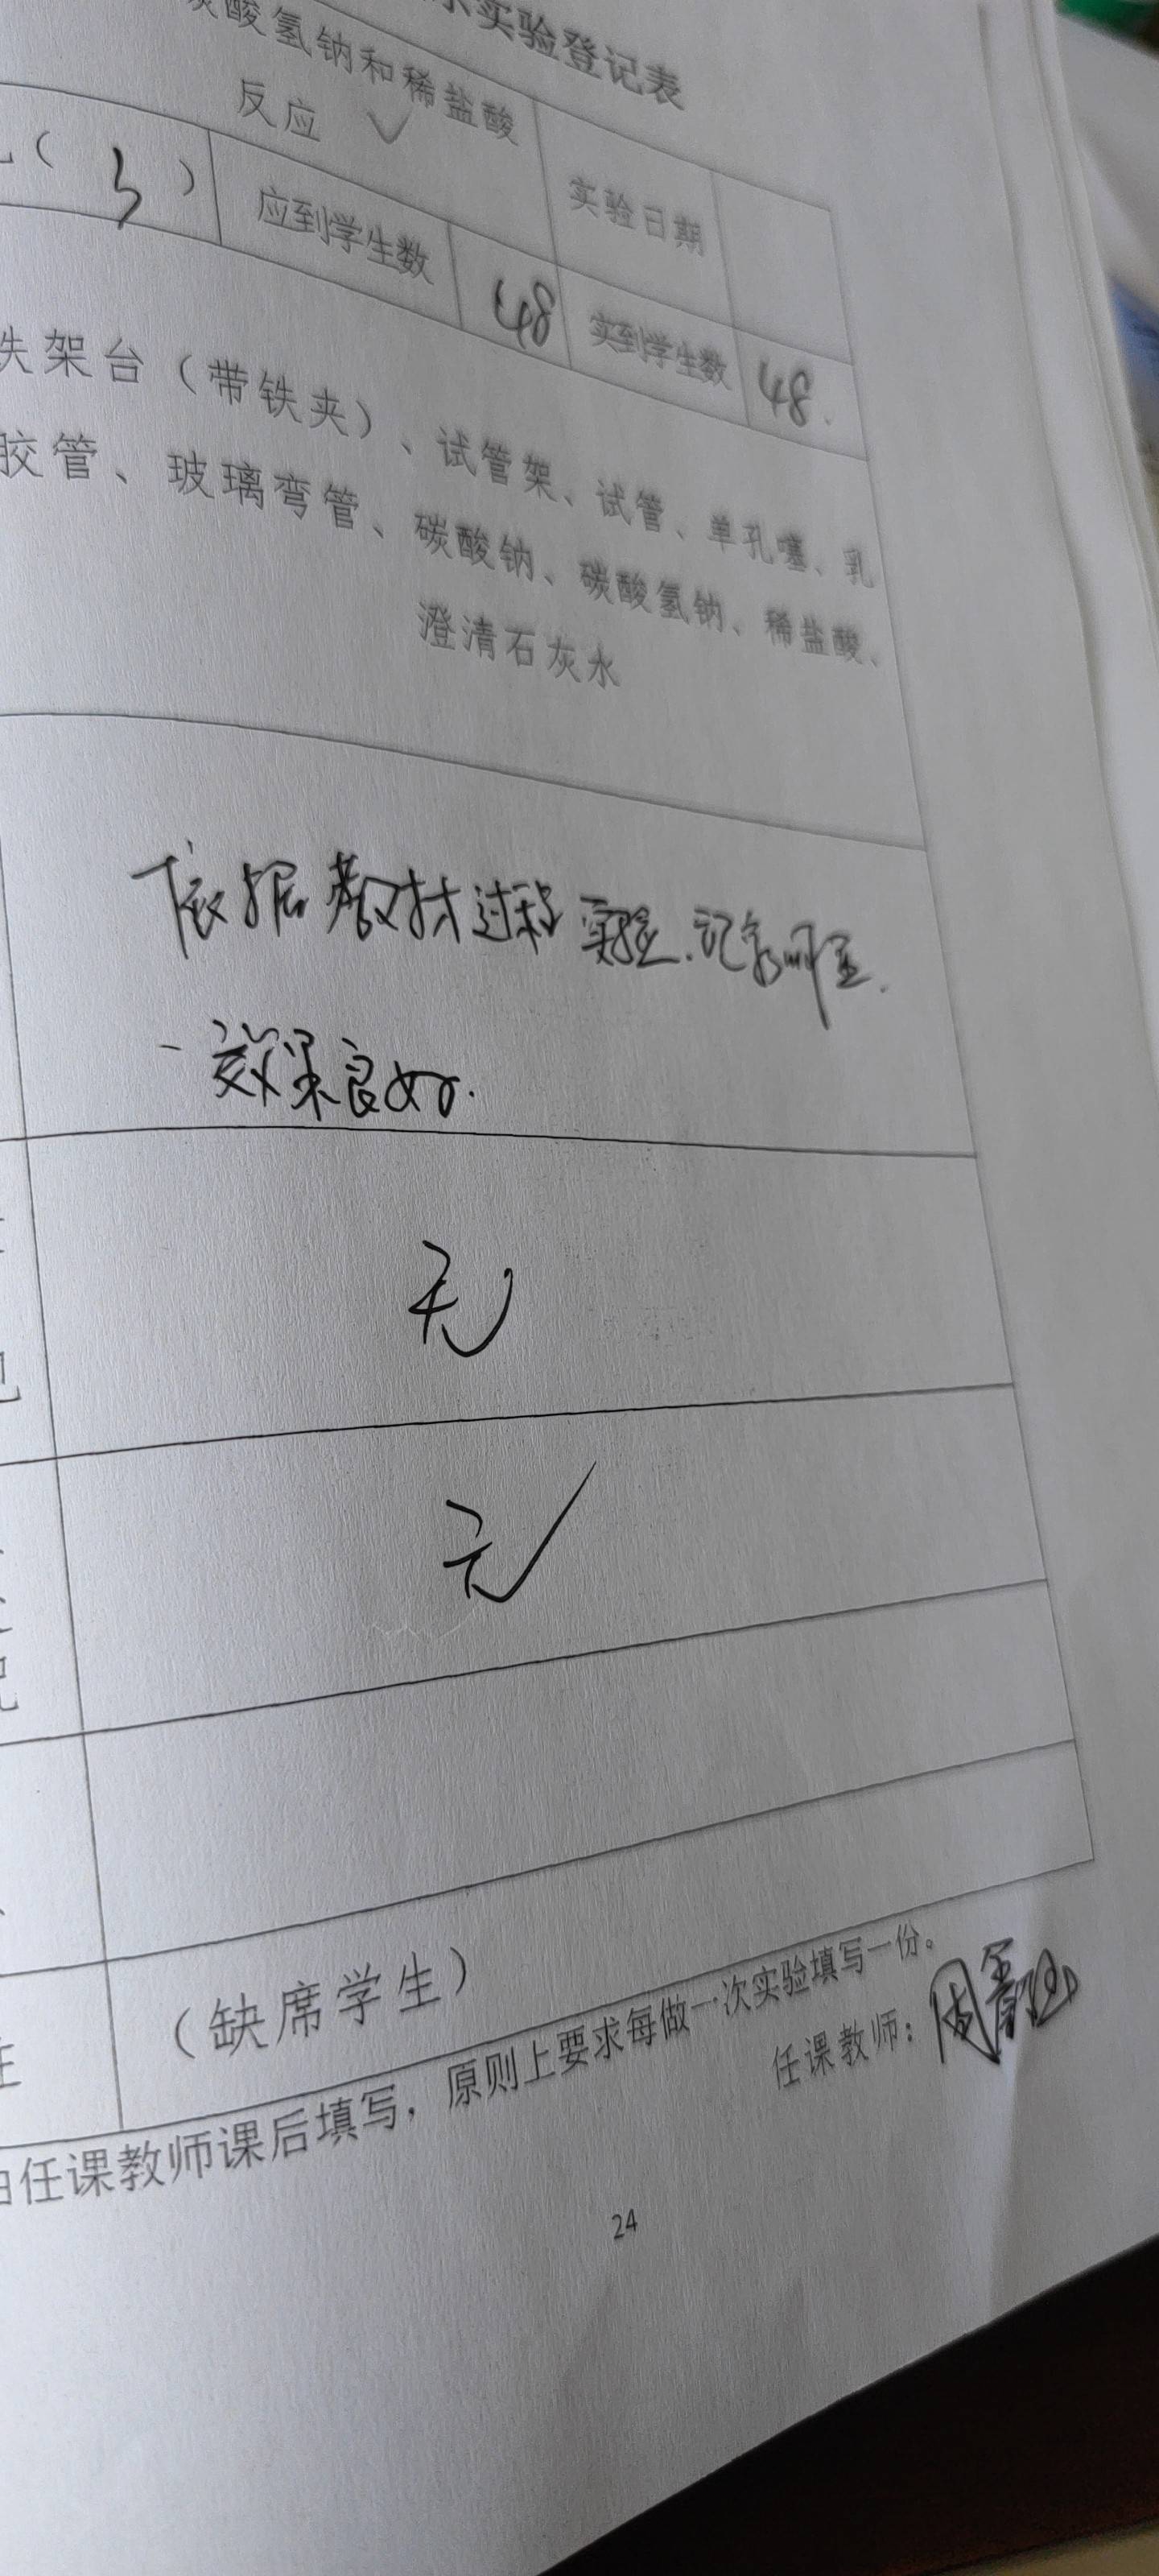 示实验登记表
碳酸氢钠和稀盐酸
反应 ✓
实验日期
(3)
应到学生数 48 实到学生数 48.
铁架台（带铁夹）、试管架、试管、单孔塞、乳
胶管、玻璃弯管、碳酸钠、碳酸氢钠、稀盐酸、
澄清石灰水
依据教材过程实验.记录
效果良好.
无
无
（缺席学生）
由任课教师课后填写，原则上要求每做一次实验填写一份。
任课教师：周
24